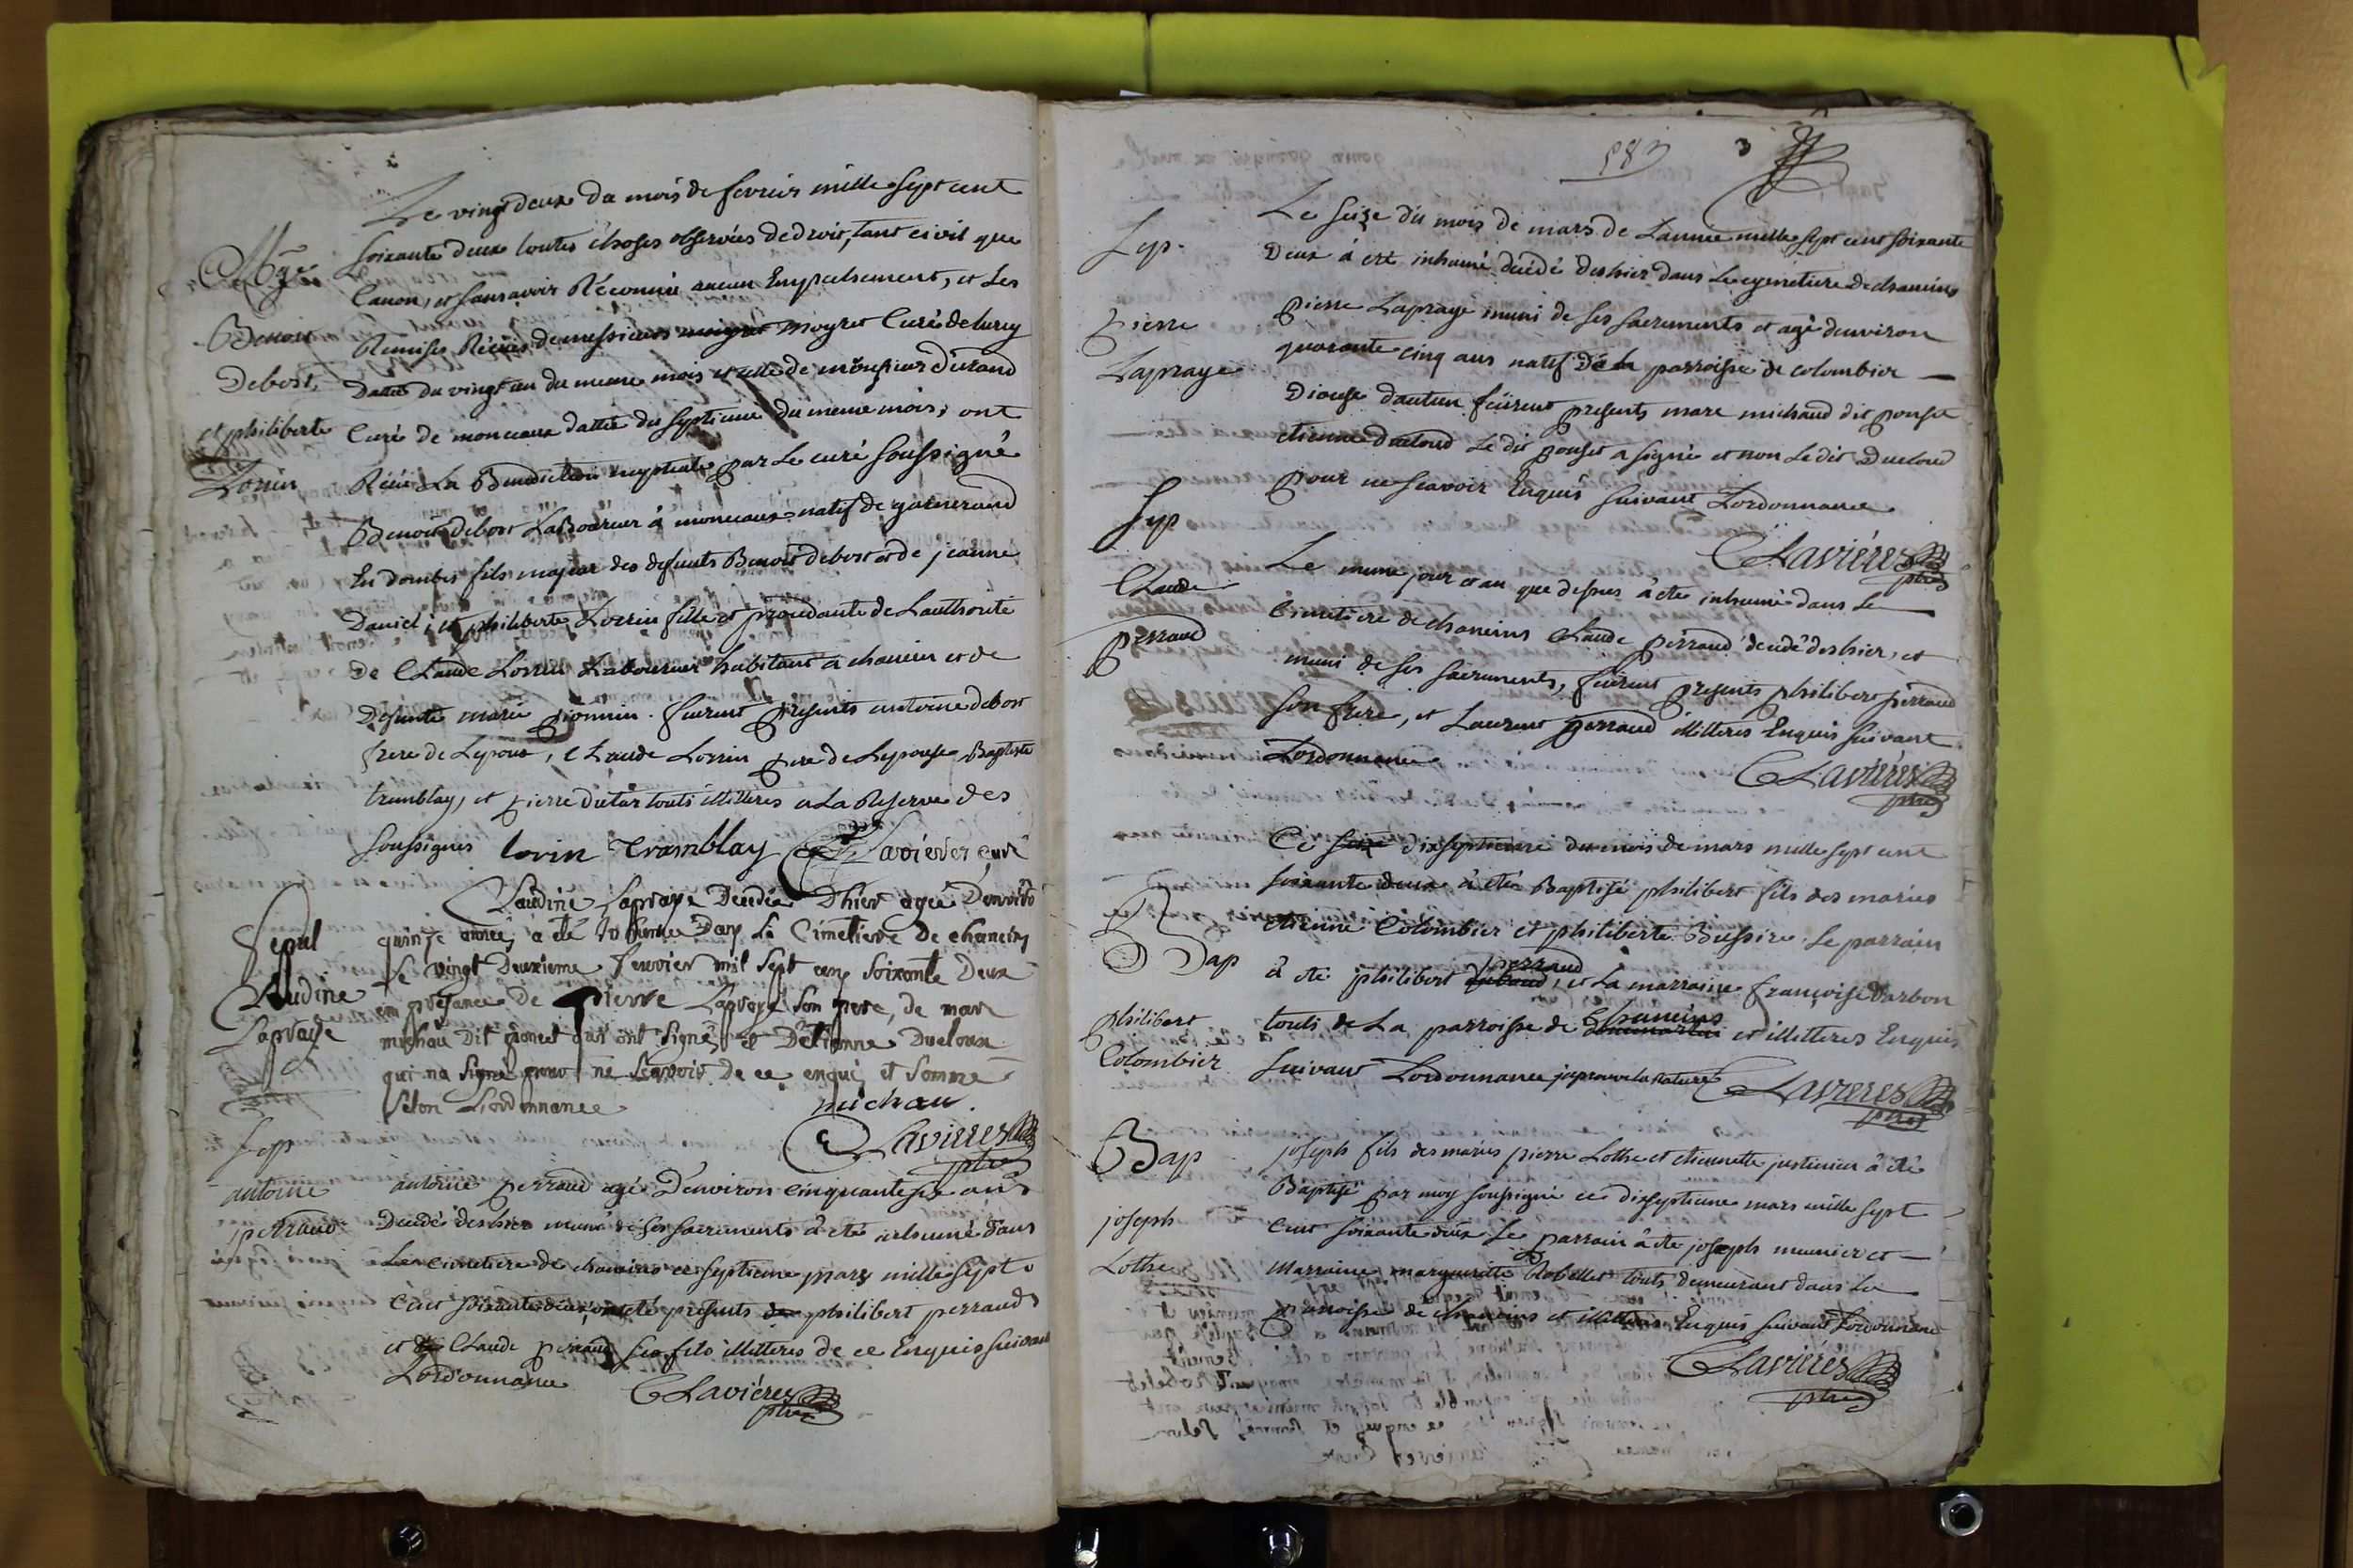 Le vingt deux du mois de fevrier mille sept cent
Mge
soixante deux toutes choses observées de droit, tant civil que
Canon, et sans avoir Réconnu aucun Empechement, et Les
Benoit
Remises Récuës de messieurs moyret Curé de lurcy
debost,
Datée du vingt un du meme mois et celle de monsieur durand
et philiberte
Curé de monceaux dattée du septieme du meme mois, ont
Lorrin
Récu La Benediction nuptiale par Le curé soussigné
Benoit debost LaBoureur à monceaux natif de guenerand
En dombes fils majeur des defunts Benoit debost et de jeanne
Daniel; et philiberte Lorrin fille et procedante de Lauthorité
de Claude Lorrin Laboureur habitant a chanein et de
Defunte marie pionnin. furent presents antoine debost
frere de Lepoux, Claude Lorrin pere de Lepouse, Baptiste
tremblay, et pierre dutar touts illitteres a La Reserve des
soussignes lorin Tramblay Lavieres curé
Claudine Lapraye Decedée Dhier agée D'environ
Sepul
quinze année, a été Inhumée Dans Le Cimetiere De chaneins
Le vingt Deuxieme fevrier mil sept cens soixante Deux
Cludine
em présance De pierre Lapraye son pere, de marc
Lapraye
michau Dit poncet qui ont signé, et D'Etienne Ducloux
qui na signé pour ne Scavoir De ce enquis et Somme
selon Lordonnance michau
Lavieres ptre
Sep
antoine
antoine perraud agé D'environ cinquante six ans
perraud
Decedé deshier muni de ses sacrements à eté inhumé dans
Le cimetiere de chaneins ce septieme mars mille sept
Cent soixante deux, ont eté presents philibert perraud
et Claude perraud ses fils illitteres de ce Enquis suivant
Lordonnance Laviéres ptre
583 3
Sep.
Le seize du mois de mars de Lannée mille sept cent soixante
Deux à eté inhumé decédé deshier dans Le cymetiere de chaneins
pierre
pierre Lapraye muni de ses sacrements et agé denviron
Lapraye
quarante cinq ans natif de la parroisse de colombier
Diocese dautun fûrent presents marc michaud dit ponset
etienne ducloud Le dit ponset a signé et non Le dit Ducloud
pour ne scavoir Enquis suivant Lordonnance
Laviéres ptre
Sep
Claude
Le meme jour et an que dessus à ete inhumé dans Le
perraud
Cimetiere de chaneins Claude perraud decedé deshier, et
muni de ses sacrements, furent presents philibert perraud
son frere, et Laurent perraud illitteres Enquis suivant
Lordonnance
Laviéres ptre
Ce seize dixseptieme du mois de mars mille sept cent
soixante deux à eté Baptisé philibert fils des mariés
Bap
etienne Colombier et philiberte Bussire. Le parrain
à eté philibert perraud, et La marraine françoise darbon
philibert
touts de La parroisse de Chaneins et illitteres Enquis
Colombier
suivant Lordonnance japrouve la rature
Lavieres ptre
Bap
joseph fils des mariés pierre Lothe et etiennette justinien à été
Baptisé par moy soussigné ce dixseptieme mars mille sept
joseph
Cent soixante deux Le parrain à ete joseph meunier et
Lothe
Marraine marguerite Robellet touts demeurant dans La
parroisse de chaneins et illitteres Enquis suivant Lordonnance
Lavieres ptre